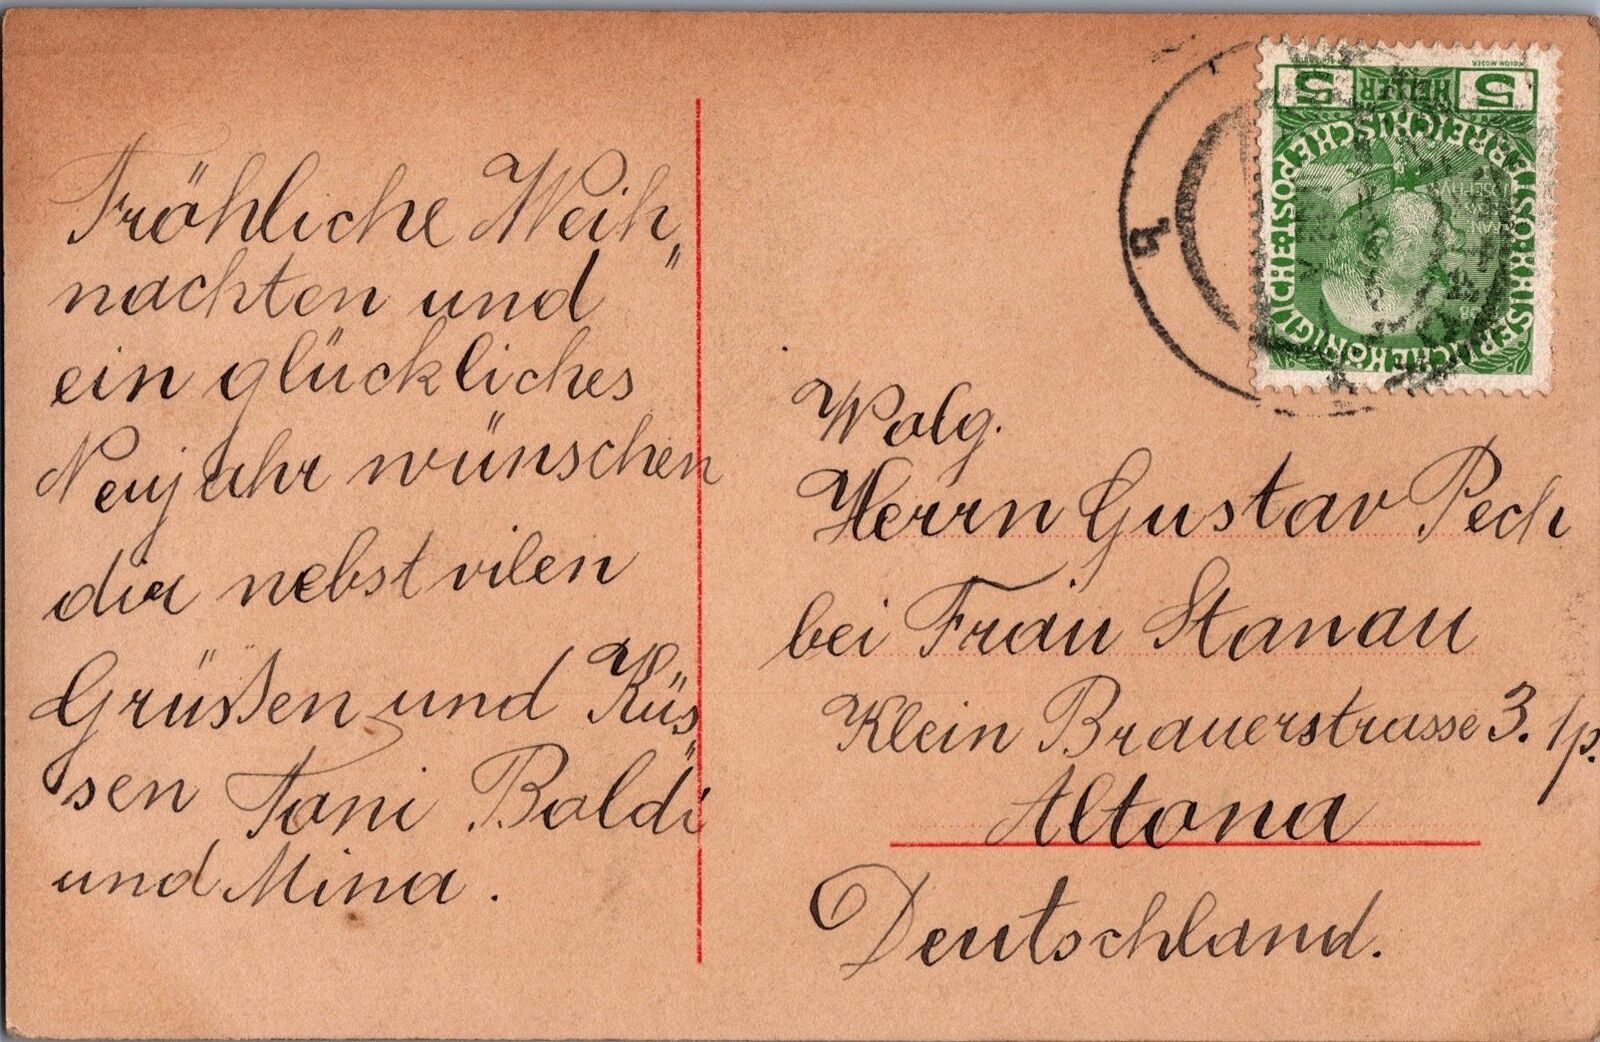 Fröhliche Weih„
nachten und
ein glückliches
Neujahr wünschen
dir nebst vilen
Grüssen und Küs„
sen Toni Poldi
und Mina.
Wolg.
Herrn Gustav Pech
bei Frau Stanau
Klein Brauerstrasse 3. 1p.
Altona
Deutschland.
5 HELLER 5
KAISERLICHE KÖNIGLICHE ÖSTERREICHISCHE POST
b